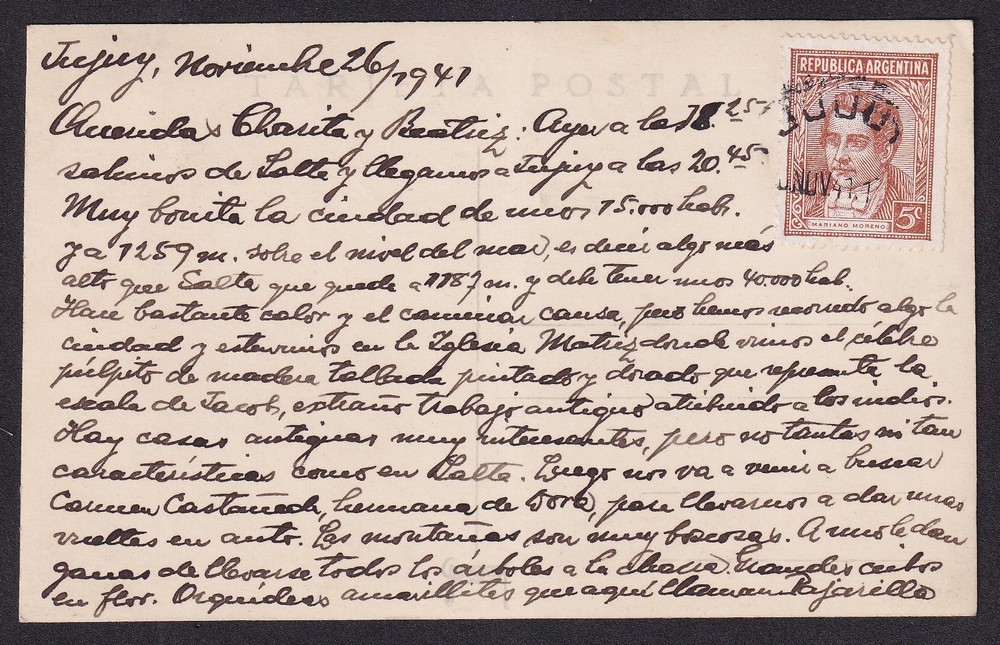 TARJETA POSTAL
Jujuy, Noviembre 26/1941
REPUBLICA ARGENTINA
JUJUY
NOV 41
5c
MARIANO MORENO
Queridas Charita y Beatriz: Ayer a las 18.25
salimos de Salta y llegamos a Jujuy a las 20.45
Muy bonita la ciudad de unos 15.000 hab.
y a 1259 m. sobre el nivel del mar, es decir algo más
alto que Salta que queda a 1187 m. y debe tener unos 40.000 hab.
Hace bastante calor y el caminar cansa, pero hemos recorrido algo la
ciudad y estuvimos en la Iglesia Matriz donde vimos el célebre
púlpito de madera tallada pintado y dorado que representa la
escala de Jacob, extraño trabajo antiguo atribuido a los indios.
Hay casas antiguas muy interesantes, pero no tantas ni tan
características como en Salta. Luego nos va a venir a buscar
Carmen Castañeda, hermana de Dora, para llevarnos a dar unas
vueltas en auto. Las montañas son muy boscosas. A uno le dan
ganas de llevarse todos los árboles a la chacra. Grandes ceibos
en flor. Orquídeas amarillitas que aquí llaman Pajarilla